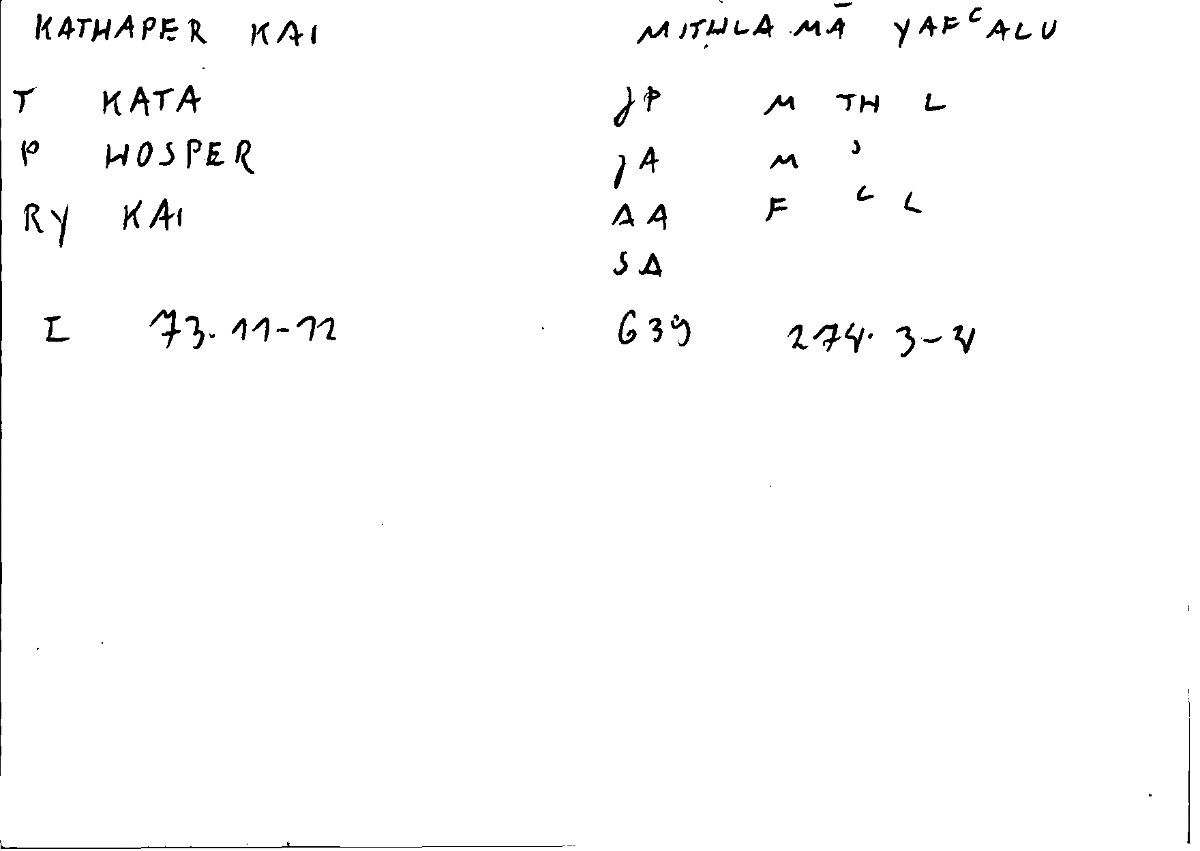 KATHAPER KAI MITHLA MĀ YAFʿALU
T KATA JP M TH L
P HOSPER JA M ʾ
RY KAI AA F ʿ L
SA
I 73. 11-12 639 274. 3-4